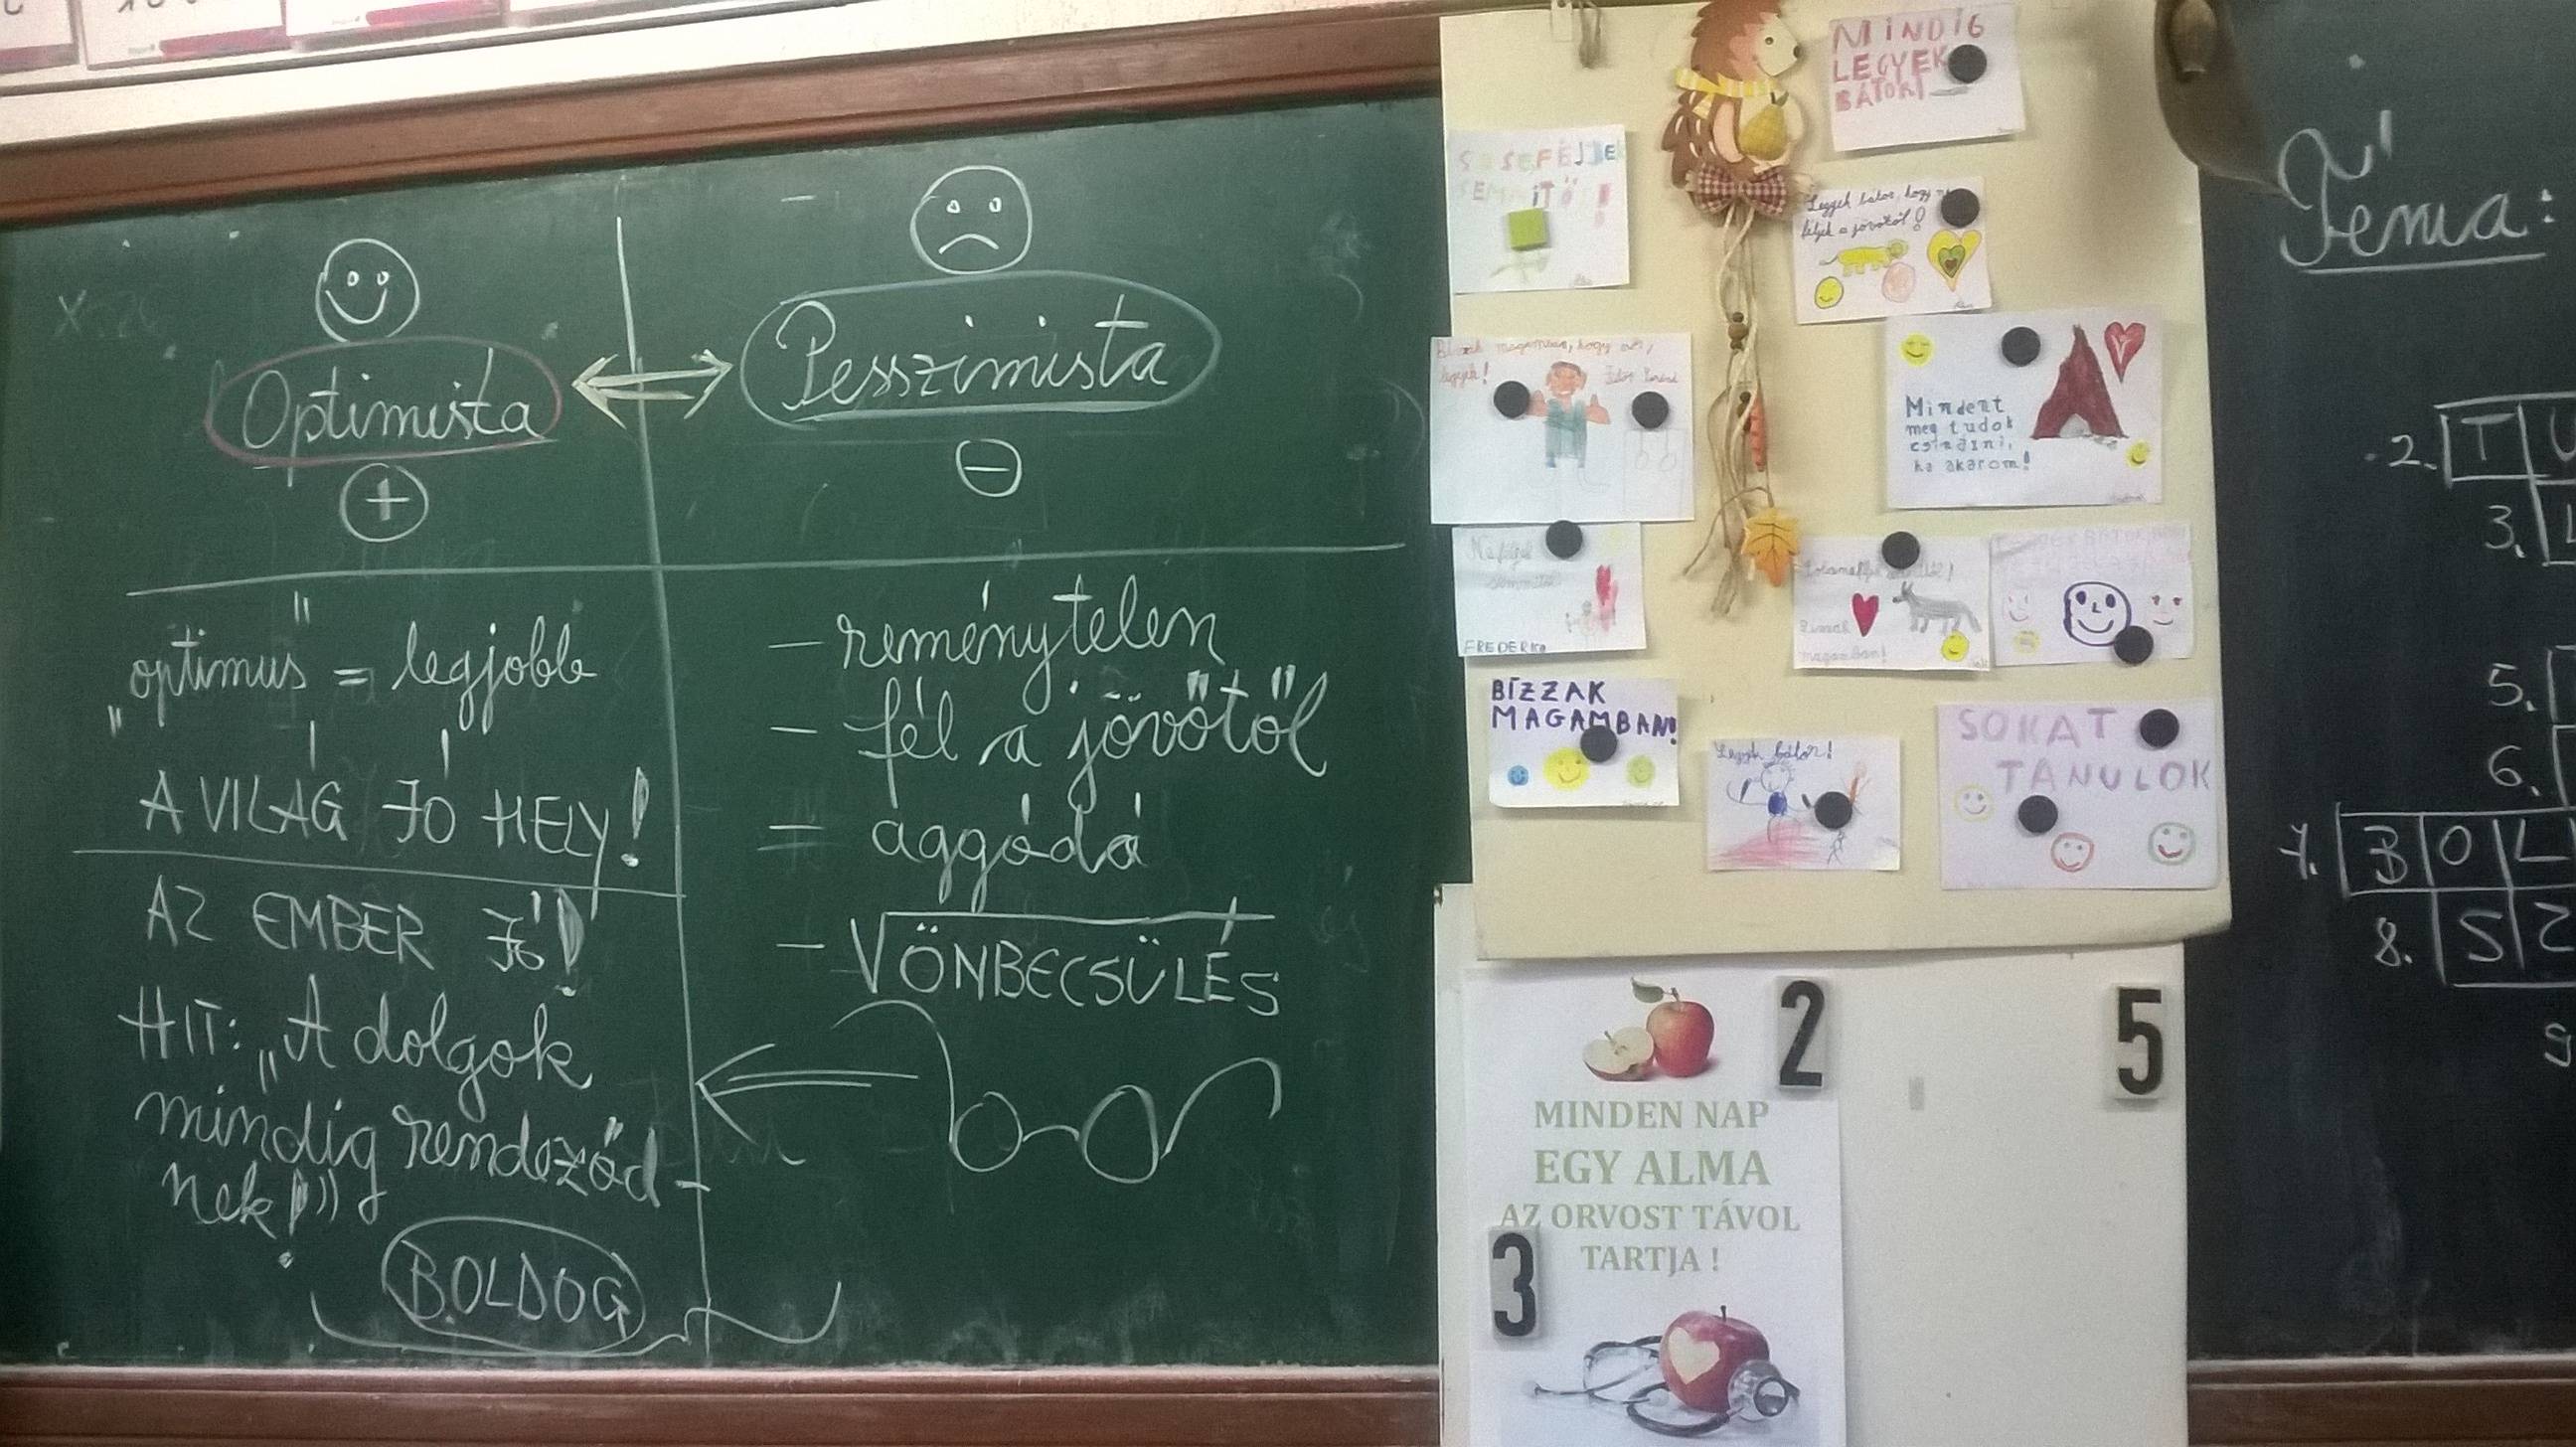 Optimista
Pesszimista
+
-
"optimus" = legjobb
A VILÁG JÓ HELY!
AZ EMBER JÓ!
HIT: „A dolgok
mindig rendeződ-
nek!"
BOLDOG
- reménytelen
- fél a jövőtől
= aggódó
- ÖNBECSÜLÉS
MINDIG
LEGYEK
BÁTOR!
Legyek bátor, hogy ne
féljek a jövőtől!
legyek!
Mindent
meg tudok
csinálni,
ha akarom!
Ne féljek
semmitől
FREDERIKA
magamban!
BÍZZAK
MAGAMBAN!
Legyek bátor!
SOKAT
TANULOK
2
5
3
MINDEN NAP
EGY ALMA
AZ ORVOST TÁVOL
TARTJA !
Téma:
2. T U
3. L
5.
6.
7. B O L
8. S Z